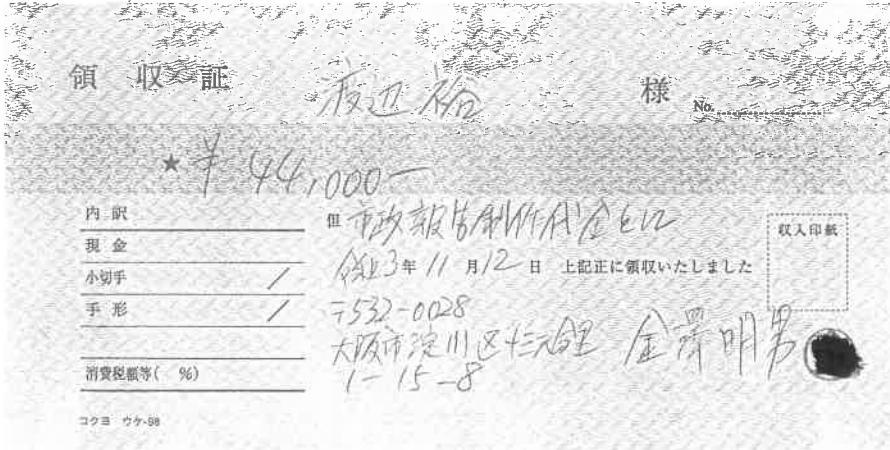 領収証 渡辺 裕 様 No.
★ ¥44,000-
内訳
現金
小切手 /
手形 /
消費税額等( %)
コクヨ ウケ-98
但 市政報告制作代金として
令和3年11月12日 上記正に領収いたしました
〒532-0028
大阪市淀川区十三元今里
1-15-8
金澤明男
収入印紙